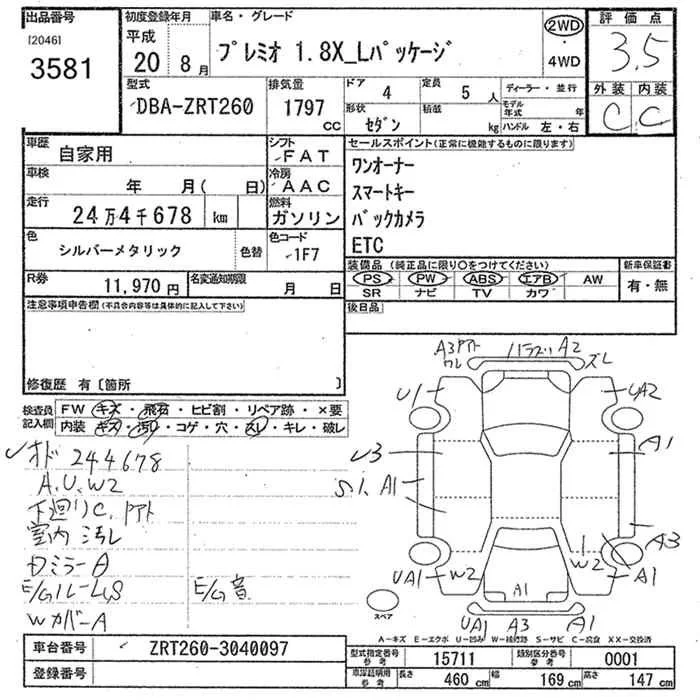 出品番号 初度登録年月 車名・グレード 評価点
[2046] 平成 プレミオ 1.8X_Lパッケージ 2WD 3.5
3581 20 8月 4WD
型式 排気量 ドア 4 定員 5人 ディーラー・並行 外装 内装
DBA-ZRT260 1797 CC 形状 セダン 積載 kg モデル年式 年 C C
ハンドル 左・右
車歴 自家用 シフト FAT セールスポイント(正常に機能するものに限ります)
車検 年 月( 日) 冷房 AAC ワンオーナー
走行 24万4千678 km 燃料 ガソリン スマートキー
バックカメラ
色 シルバーメタリック 色替 色コード 1F7 ETC
R券 11,970円 名変通知期限 月 日 装備品(純正品に限り○をつけてください) 新車保証書
PS PW ABS エアB AW 有・無
SR ナビ TV カワ
注意事項申告欄(不具合内容等は具体的に記入して下さい) 後日品
修復歴 有〔箇所 〕
検査員記入欄 FW キズ・飛石・ヒビ割・リペア跡・×要
内装 キズ・汚れ・コゲ・穴・スレ・キレ・破レ
オド 244678
A.U.W2
下廻りC.
室内 汚レ
E/G音
WカバーA
A2 ズレ
U1 UA2
U3 A1
S1. A1
A3
UA1 W2 W2 A1
A1
スペア UA1 A3 A1
A-キズ E-エクボ U-凹み W-補修跡 S-サビ C-腐食 XX-交換済
車台番号 ZRT260-3040097
型式指定番号 参考 15711 類別区分番号 参考 0001
登録番号 車庫証明用 参考 長さ 460cm 幅 169cm 高さ 147cm